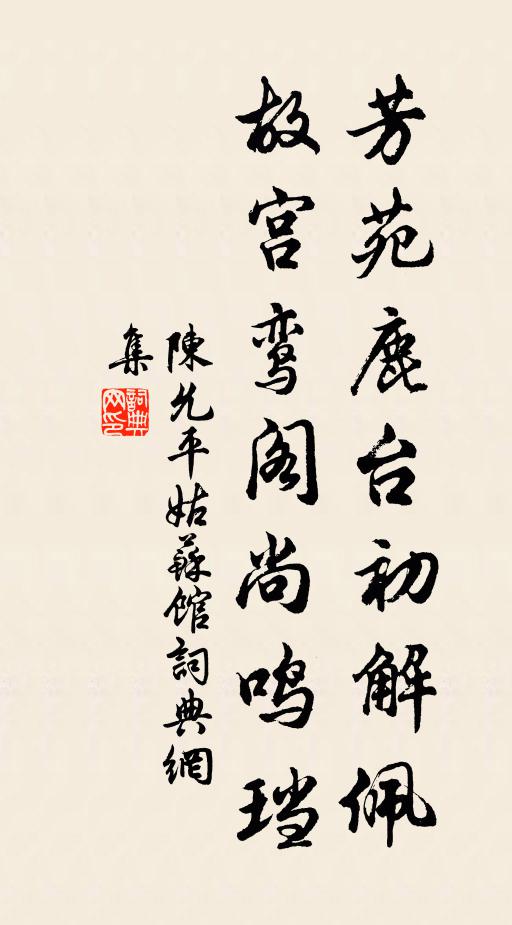 芳苑鹿台初解佩
故宫鸾阁尚鸣珰
陳允平姑蘇館詞典網
集
詞典
网印